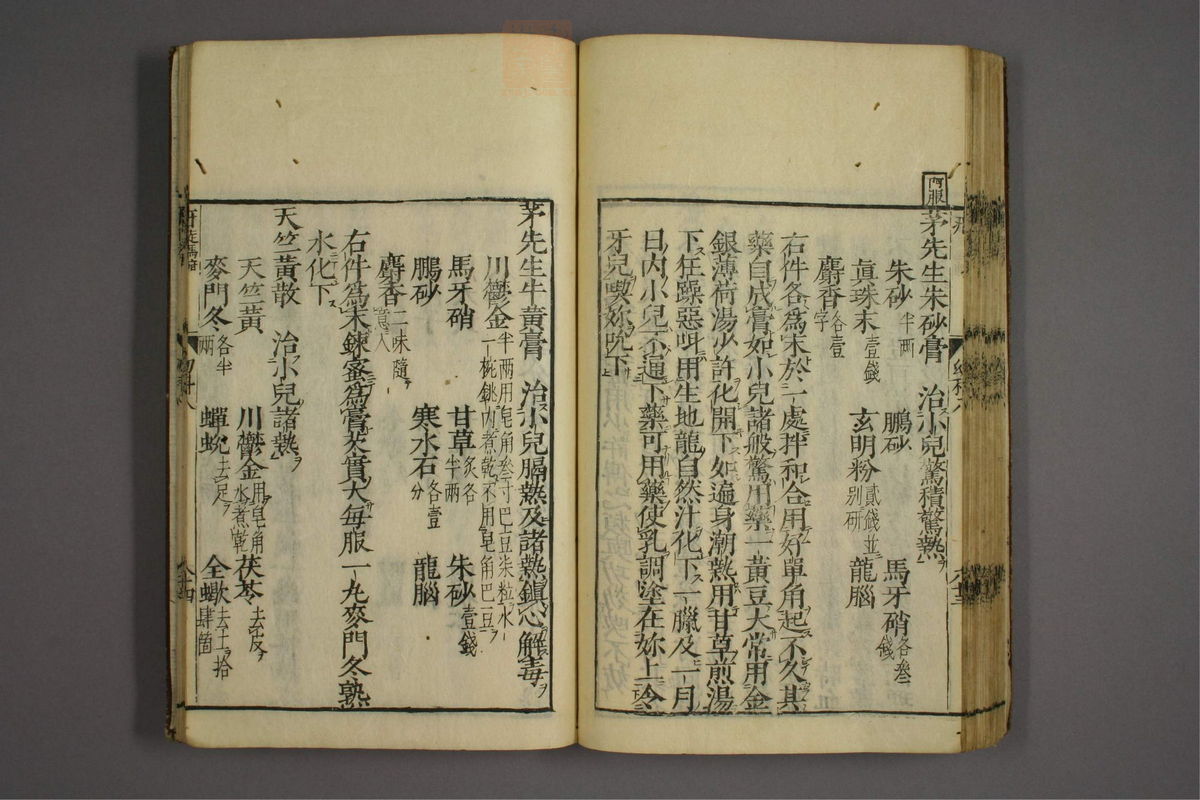 茅先生朱砂膏　治小兒驚積驚熱
朱砂半兩　鵬砂　馬牙硝各叁錢
眞珠末壹錢　玄明粉貳錢並別研　龍腦
麝香各壹字
右件各爲末於一處拌和合用好單角起不久其
藥自成膏如小兒諸般驚用藥一黃豆大常用金
銀薄荷湯少許化開下如遍身潮熱用甘草煎湯
下狂躁惡叫用生地龍自然汁化下一臘及一月
日内小兒不通下藥可用藥使乳調塗在妳上令
牙兒喫妳吮下
茅先生牛黃膏　治小兒膈熱及諸熱鎭心解毒
川鬱金半兩用皂角叁寸巴豆柒粒水一椀銚内煮乾不用皂角巴豆
馬牙硝　甘草炙各半兩　朱砂壹錢
鵬砂　寒水石各壹分　龍腦
麝香二味隨意入
右件爲末錬蜜爲膏芡實大每服一丸麥門冬熟
水化下
天竺黃散　治小兒諸熱
天竺黃　川鬱金用皂角水煮乾　茯苓去皮
麥門冬各半兩　蟬蛻去足　全蠍去土拾肆箇